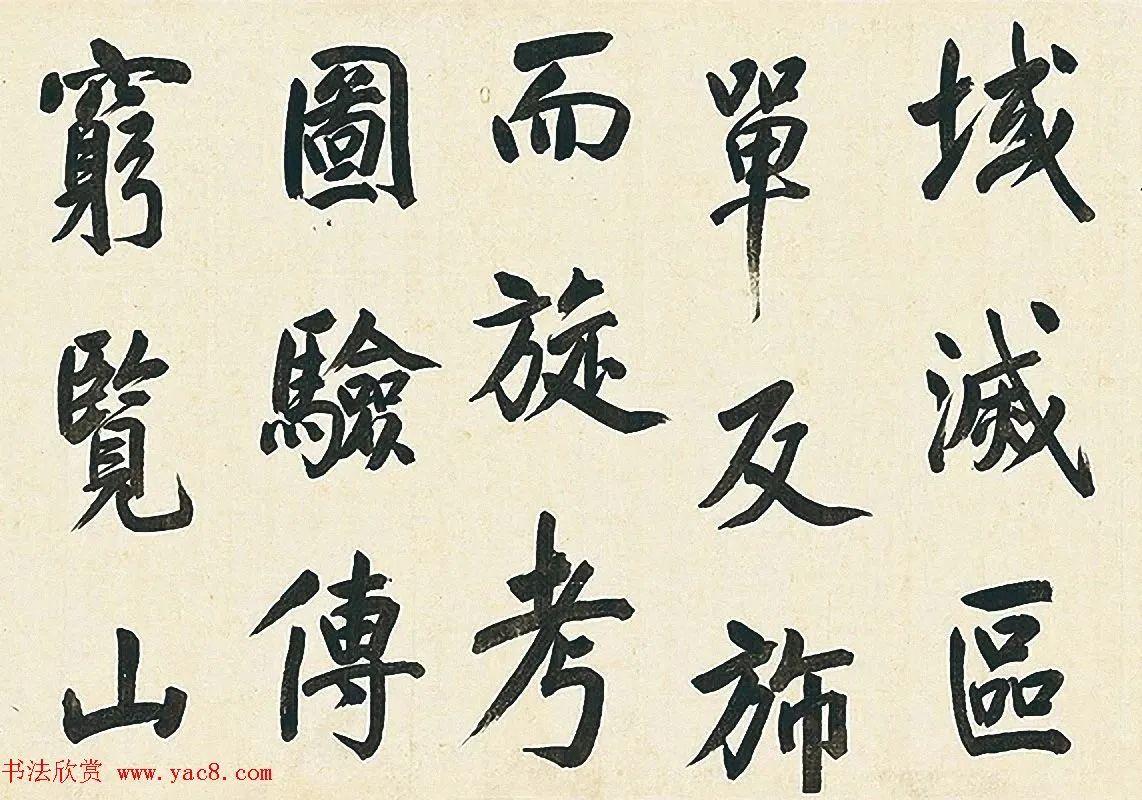 域滅區
單反斾
而旋考
圖驗傳
窮覽山
书法欣赏 www.yac8.com